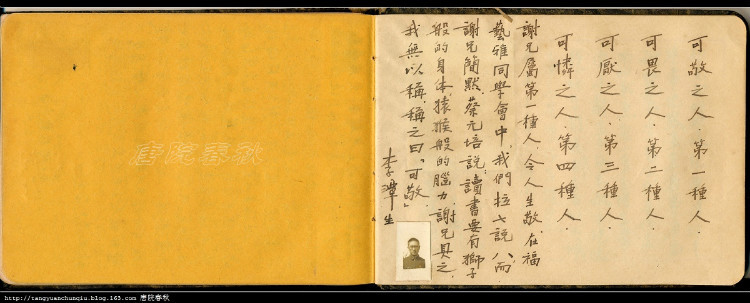 可敬之人.第一種人.
可畏之人.第二種人.
可厭之人.第三種人.
可憐之人.第四種人.
謝兄屬第一種人,令人生敬,在福
藝雅同學會中,我們拉七說八,而
謝兄簡默.蔡元培說:讀書要有獅子
般的身体,猿猴般的腦力.謝兄具之,
我無以稱,稱之曰「可敬」
李潭生
唐院春秋
http://tangyuanchunqiu.blog.163.com 唐院春秋